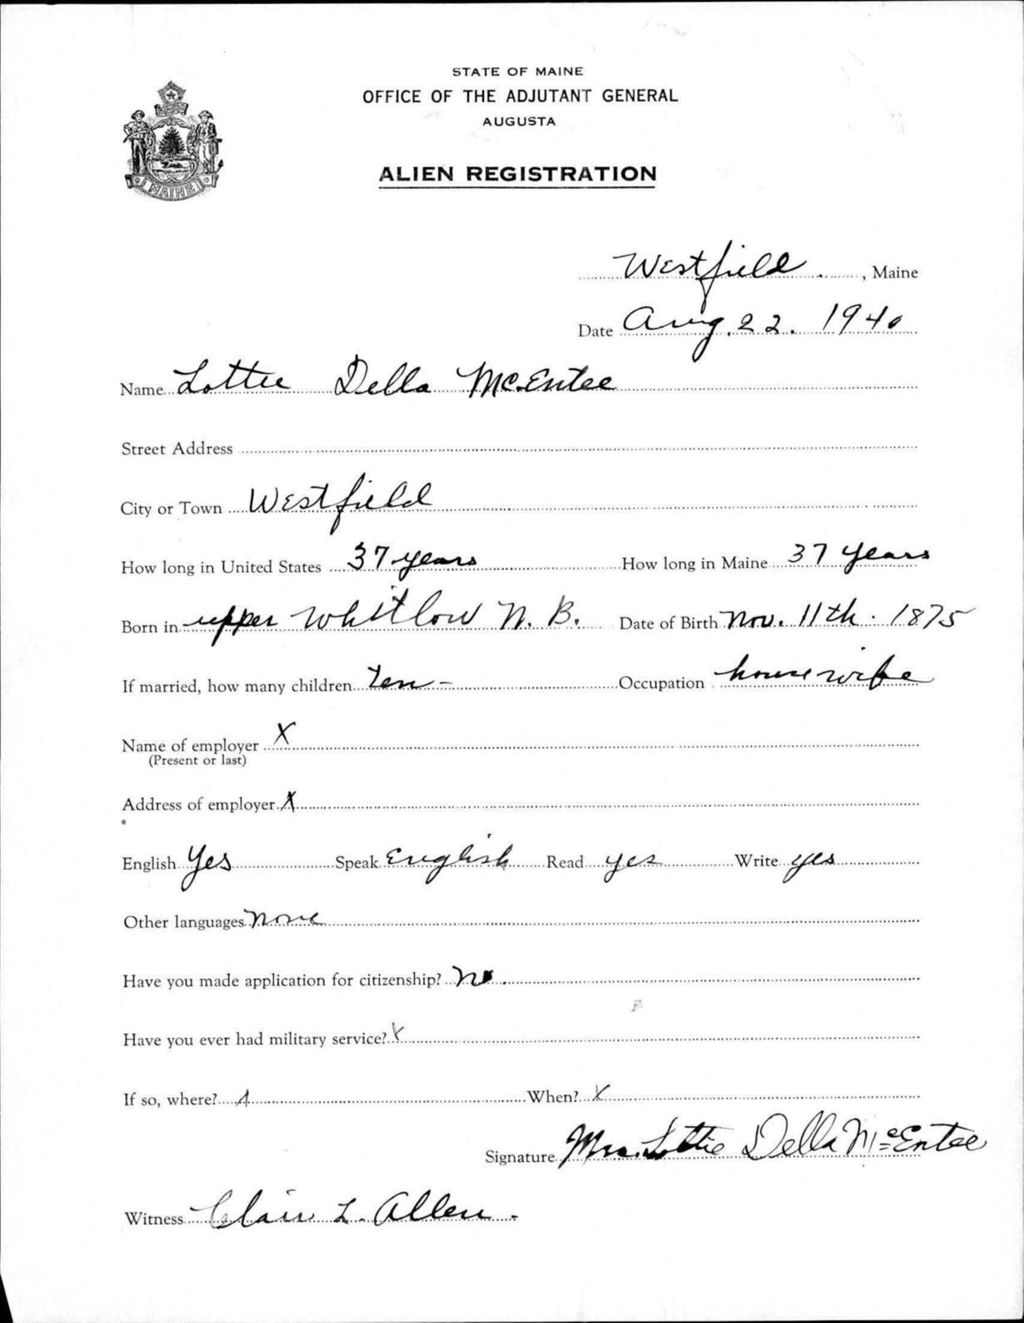 STATE OF MAINE
OFFICE OF THE ADJUTANT GENERAL
AUGUSTA
ALIEN REGISTRATION
MAINE
Westfield, Maine
Date Aug. 22. 1940
Name Lottie Della McEntee
Street Address
City or Town Westfield
How long in United States 37 years How long in Maine 37 years
Born in upper Whitlow N. B. Date of Birth Nov. 11th. 1875
If married, how many children ten - Occupation housewife
Name of employer X
(Present or last)
Address of employer X
English Yes Speak English Read yes Write yes
Other languages none
Have you made application for citizenship? No.
Have you ever had military service? X
If so, where? X When? X
Signature Mrs. Lottie Della McEntee
Witness Clair L. Allen.